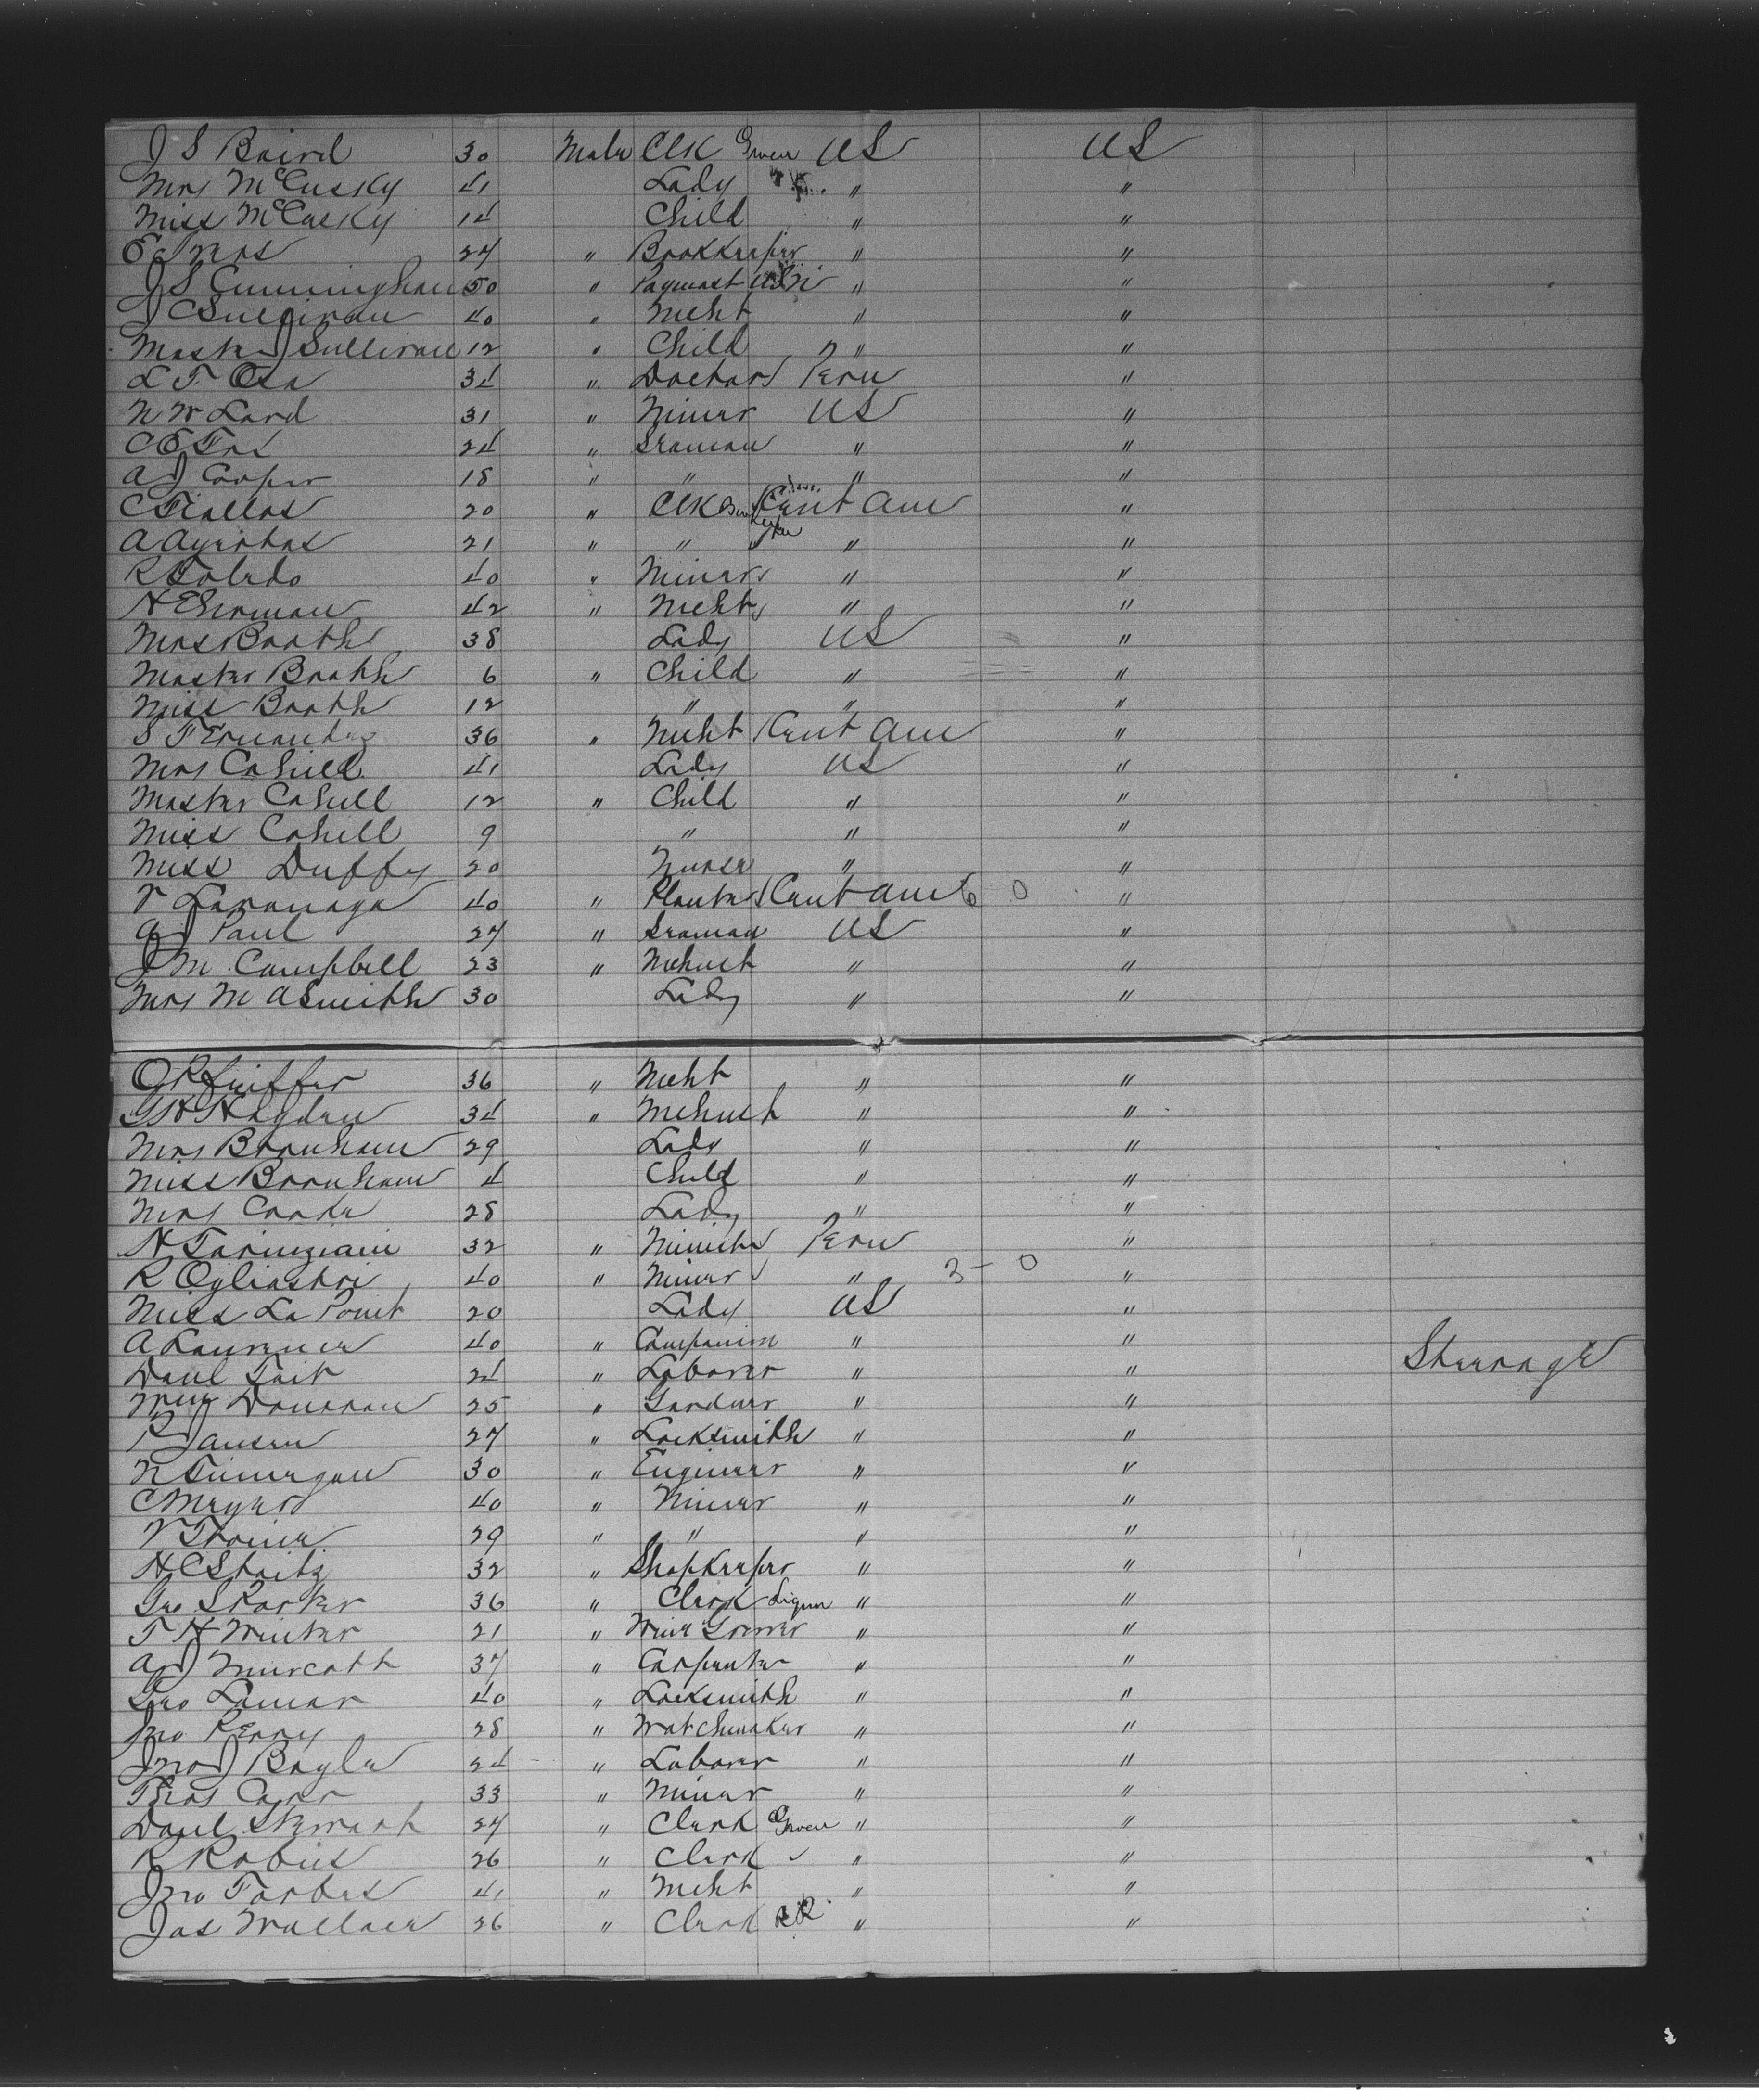 J S Baird 30 Male Clk Grocer US US
Mrs McCusky 41 Lady " "
Miss McCusky 14 Child " "
27 " Bookkeeper " "
J S Cunningham 50 " Paymast USN " "
J C Sullivan 40 " Mcht " "
Master J Sullivan 12 " Child " "
L F 34 " Doctor Peru "
N W Lord 31 " Miner US "
C E Fox 24 " Seaman " "
A J Cooper 18 " " " "
C 20 " Clk Cent Am "
A 21 " " " "
R Toledo 40 " Miner " "
H Eherman 42 " Mcht " "
Mrs Booth 38 Lady US "
Master Booth 6 " Child " "
Miss Booth 12 " " "
S Fernandez 36 " Mcht Cent Am "
Mrs Cahill 41 Lady US "
Master Cahill 12 " Child " "
Miss Cahill 9 " " "
Miss Duffy 20 Nurse " "
V 40 " Planter Cent Am 6 0 "
A J Paul 27 " Seaman US "
J M Campbell 23 " Mchnst " "
Mrs M A Smith 30 Lady " "
O R 36 " Mcht " "
G H Hayden 34 " Mchnst " "
Mrs Bronham 29 Lady " "
Miss Bronham 4 Child " "
Mrs Cooke 28 Lady " "
H 32 " Minister Peru "
R 40 " Miner " 3 - 0 "
Miss La Point 20 Lady US "
A Lawrence 40 " Companion " "
Danl Tait 24 " Laborer " " Steerage
Wm Donovan 25 " Gardner " "
P Jansen 27 " Locksmith " "
N Finnegan 30 " Engineer " "
C Meyers 40 " Miner " "
V 29 " " " "
H C 32 " Shopkeeper " "
Geo S Parker 36 " Clerk Liquor " "
T H Winter 21 " Wine Grower " "
A J Murcott 37 " Carpenter " "
Geo Lamar 40 " Locksmith " "
Jno Perry 28 " Watchmaker " "
Jno J Boyle 24 " Laborer " "
Thos Carr 33 " Miner " "
Danl Stewart 27 " Clerk Grocer " "
R Robins 26 " Clerk " "
Jno Forbes 41 " Mcht " "
Jas Wallace 26 " Clerk RR " "